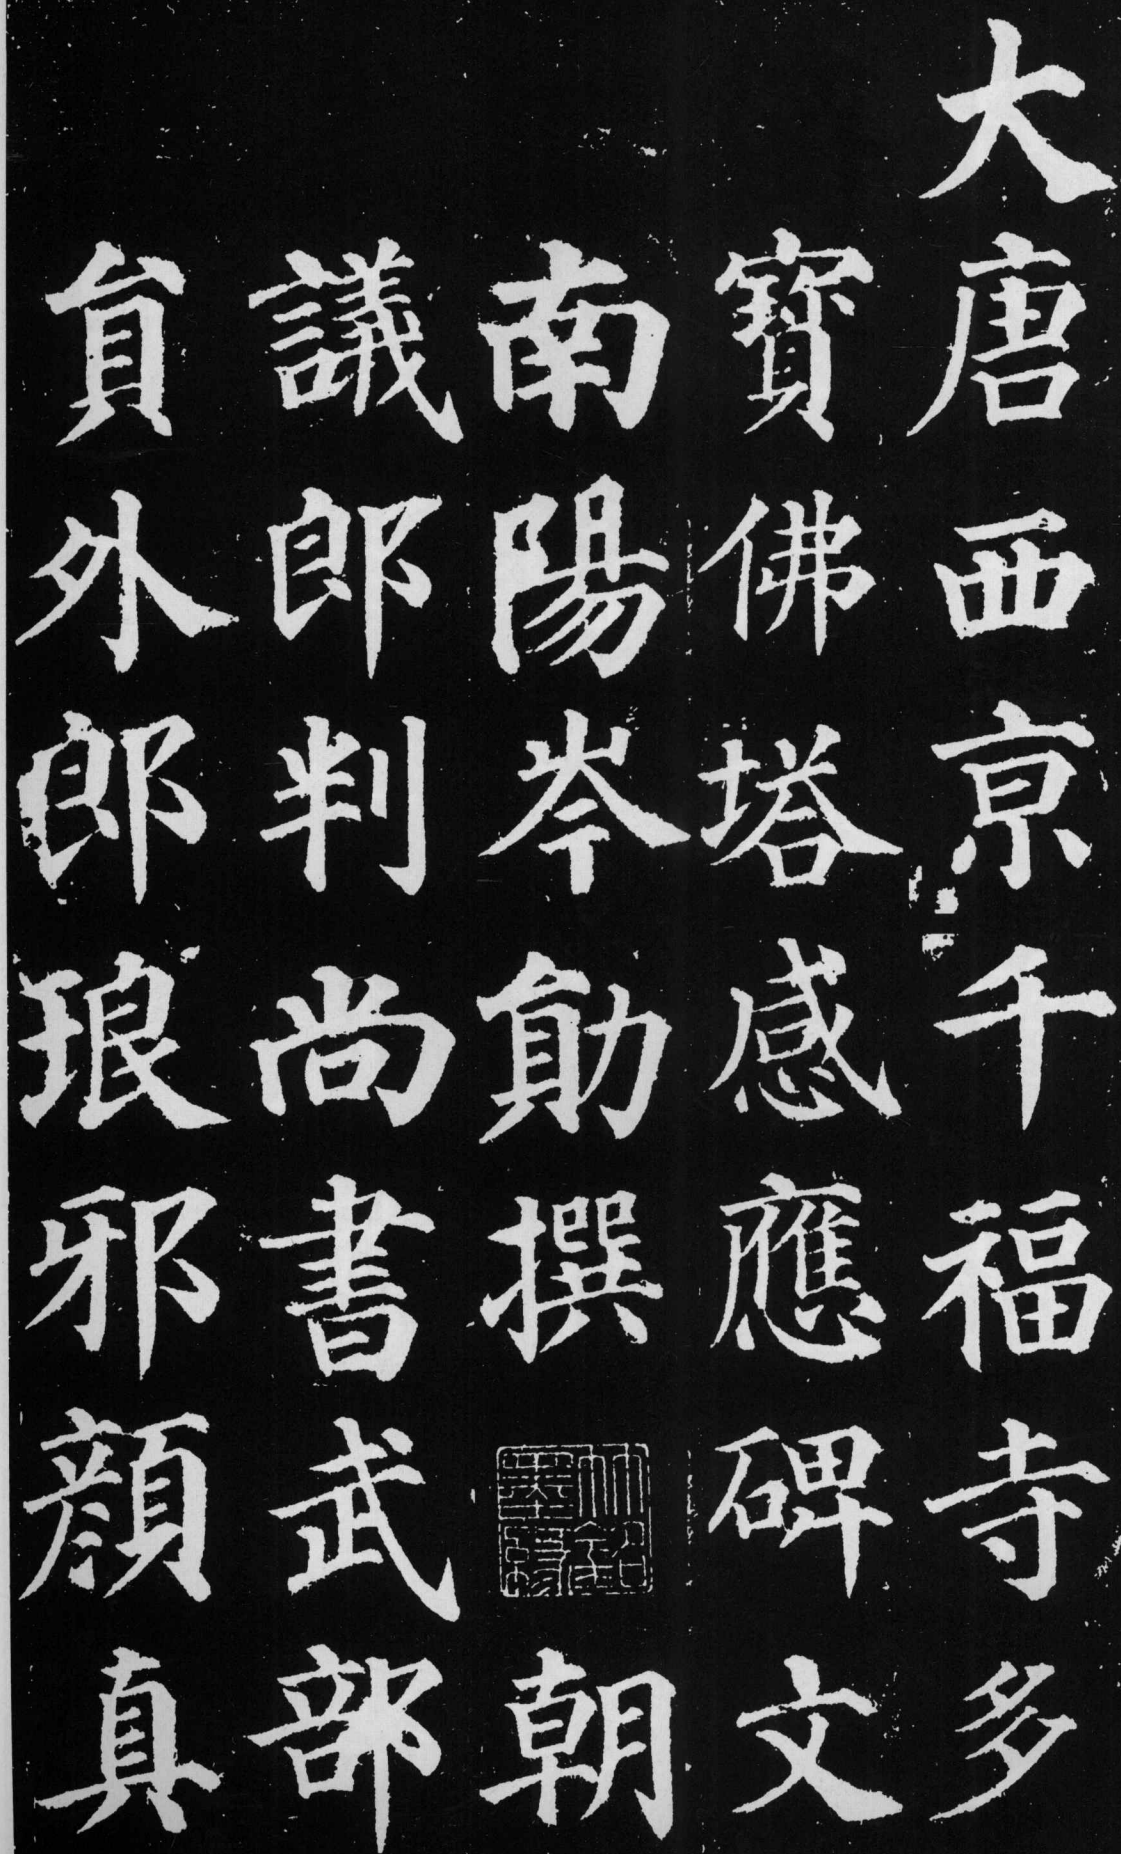 大唐西亰千福寺多
寳佛塔感應碑文
南陽岑勛撰 朝
議郎判尚書武部
貟外郎琅邪顔真